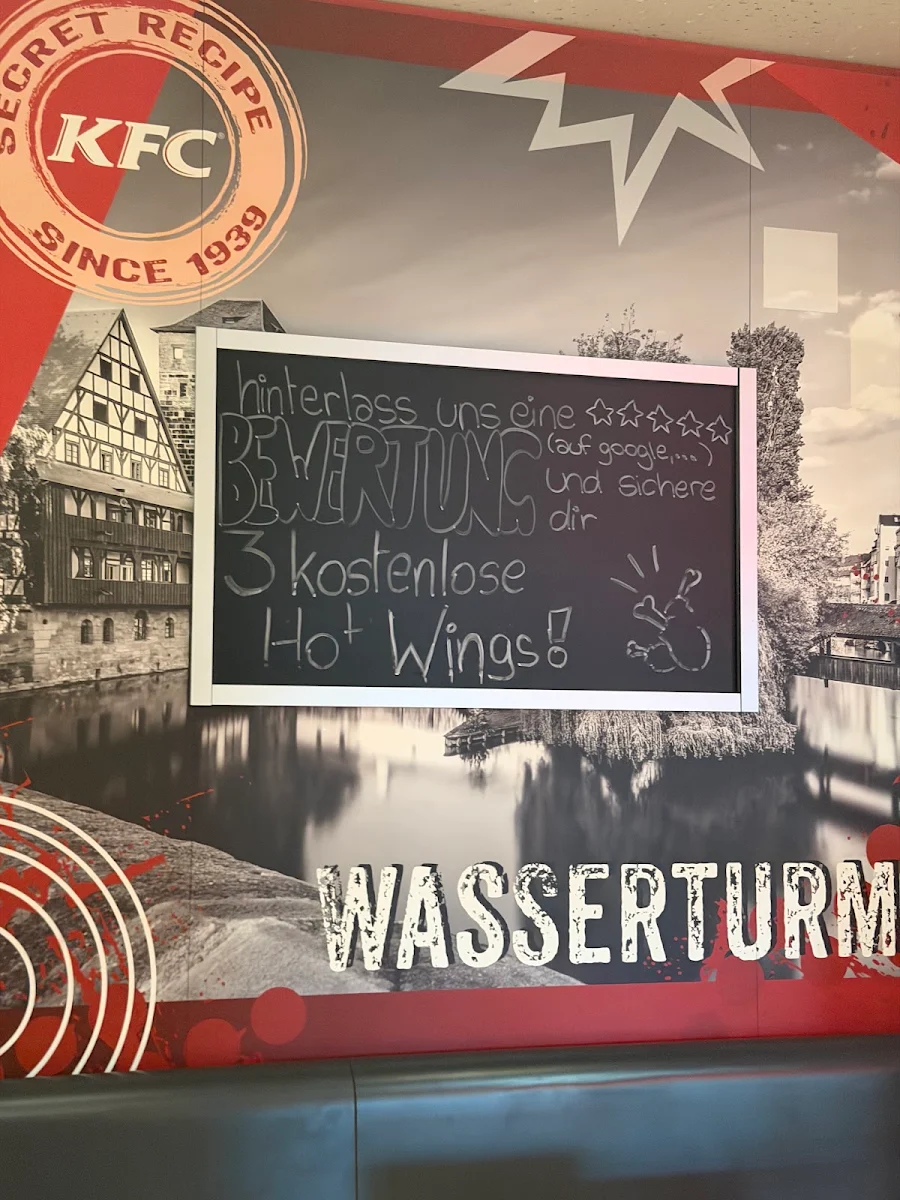 SECRET RECIPE
KFC
SINCE 1939
hinterlass uns eine ☆☆☆☆☆
BEWERTUNG (auf google,...)
und sichere
dir
3 kostenlose
Hot Wings!
WASSERTURM